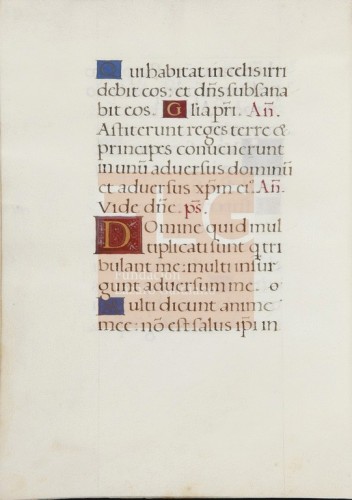 Qui habitat in celis irri
debit eos: et dñs subsana
bit eos. Glia pŕi. Añ.
Astiterunt reges terre &
principes convenerunt
in unũ adversus dominũ
et adversus xpm ei⁹ Añ.
Vide dñe. p̃s.
Domine quid mul
tiplicati sunt q tri
bulant me: multi insur
gunt adversum me.
ulti dicunt anime
mee: nõ est salus ip̃i in
FLG
Fundación